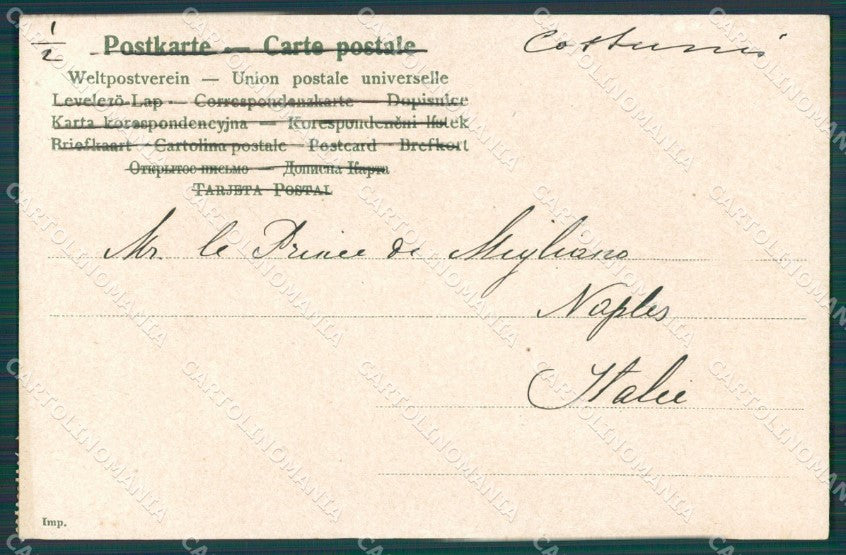 1/2
Costumi
Postkarte — Carte postale
Weltpostverein — Union postale universelle
Levelező-Lap — Correspondenzkarte — Dopisnice
Karta korespondencyjna — Korespondenční lístek
Briefkaart - Cartolina postale - Postcard - Brefkort
Открытое письмо — Дописна Карта
TARJETA POSTAL
Mr. le Prince di Migliano
Naples
Italie
Imp.
CARTOLINOMANIA